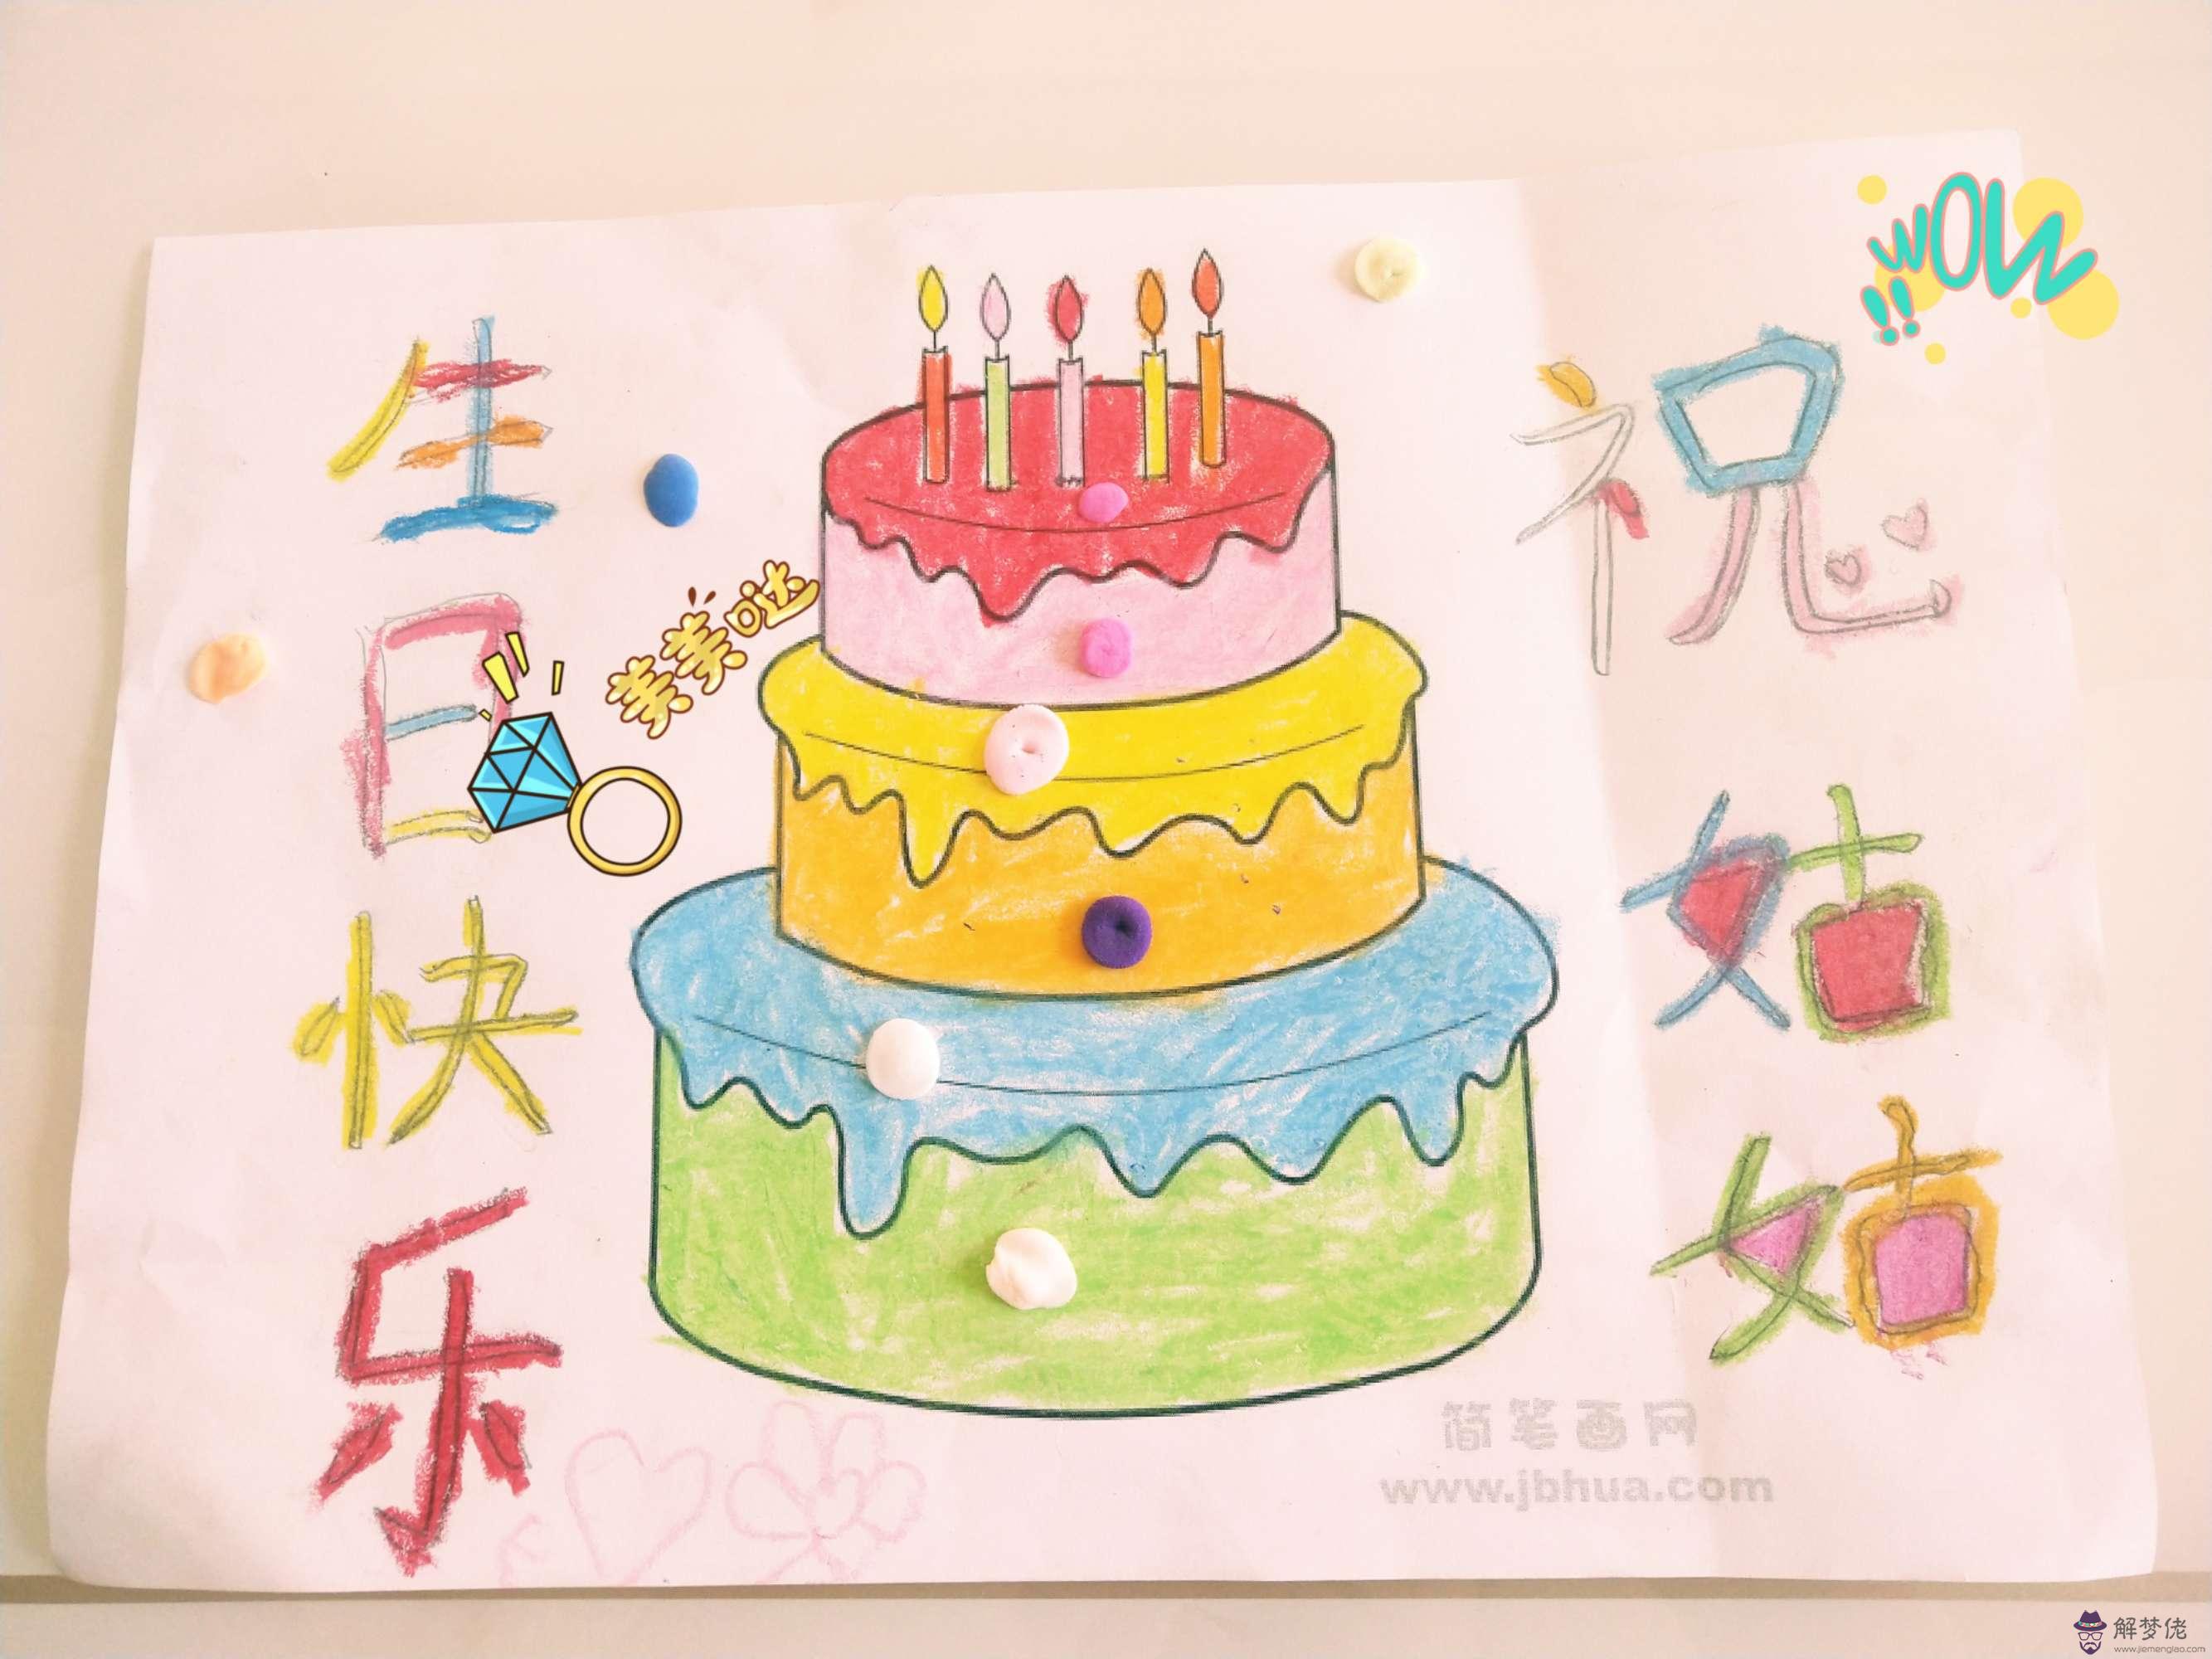 祝姑姑
生日快乐
WOW!!
美美哒
简笔画网
www.jbhua.com
解梦佬
www.jiemenglao.com